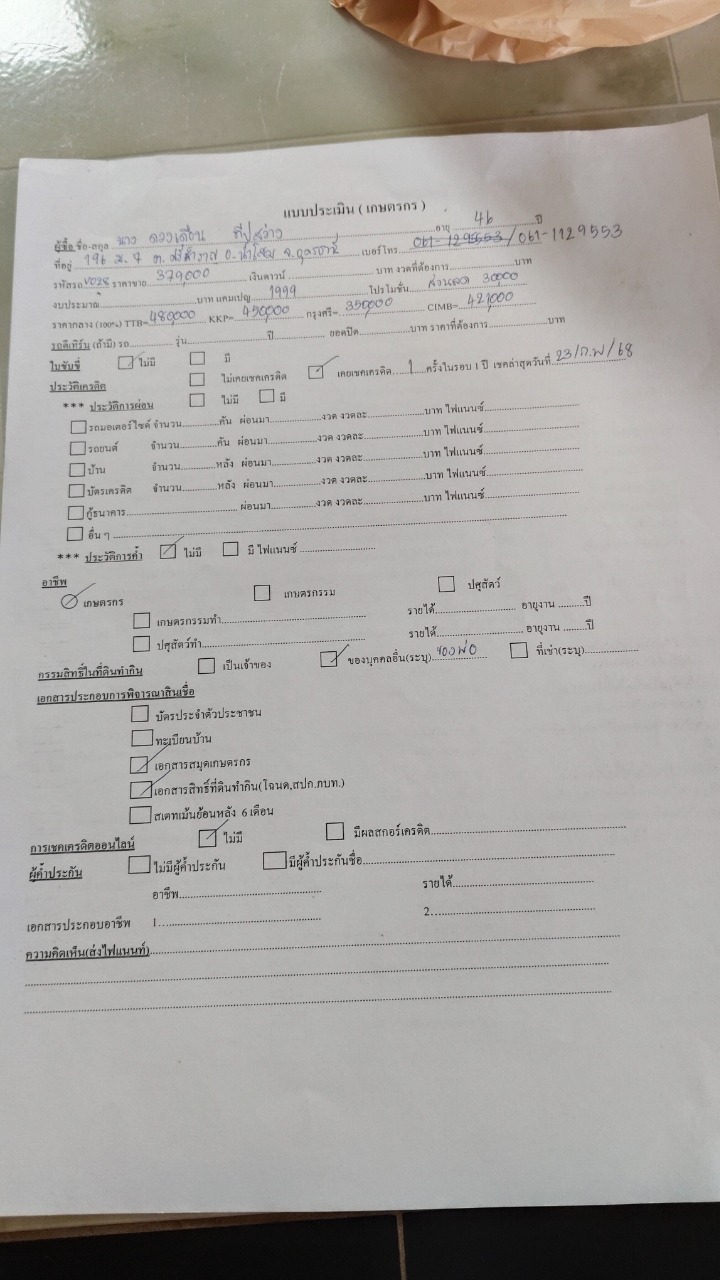 แบบประเมิน ( เกษตรกร )
ผู้ซื้อ ชื่อ-สกุล นาง ดวงเดือน ทีปสว่าง อายุ 46 ปี
ที่อยู่ 196 ม. 7 ต. ศรีสำราญ อ. น้ำโสม จ. อุดรธานี เบอร์โทร 061-129553 / 061-1129553
รหัสรถ V028 ราคาขาย 379,000 เงินดาวน์ บาท งวดที่ต้องการ บาท
งบประมาณ บาท แคมเปญ 1999 โปรโมชั่น ส่วนลด 30000
ราคากลาง (100%) TTB= 480,000 KKP= 450,000 กรุงศรี= 350,000 CIMB= 421,000
รถตีเทิร์น (ถ้ามี) รถ รุ่น ปี ยอดปิด บาท ราคาที่ต้องการ บาท
ใบขับขี่ ไม่มี มี
ประวัติเครดิต ไม่เคยเชคเครดิต เคยเชคเครดิต 1 ครั้งในรอบ 1 ปี เชคล่าสุดวันที่ 23/ก.พ/68
*** ประวัติการผ่อน ไม่มี มี
รถมอเตอร์ไซด์ จำนวน คัน ผ่อนมา งวด งวดละ บาท ไฟแนนซ์
รถยนต์ จำนวน คัน ผ่อนมา งวด งวดละ บาท ไฟแนนซ์
บ้าน จำนวน หลัง ผ่อนมา งวด งวดละ บาท ไฟแนนซ์
บัตรเครดิต จำนวน หลัง ผ่อนมา งวด งวดละ บาท ไฟแนนซ์
กู้ธนาคาร ผ่อนมา งวด งวดละ บาท ไฟแนนซ์
อื่น ๆ
*** ประวัติการค้ำ ไม่มี มี ไฟแนนซ์
อาชีพ
เกษตรกร เกษตรกรรม ปศุสัตว์
เกษตรกรรมทำ รายได้ อายุงาน ปี
ปศุสัตว์ทำ รายได้ อายุงาน ปี
กรรมสิทธิ์ในที่ดินทำกิน เป็นเจ้าของ ของบุคคลอื่น(ระบุ) ของพ่อ ที่เช่า(ระบุ)
เอกสารประกอบการพิจารณาสินเชื่อ
บัตรประจำตัวประชาชน
ทะเบียนบ้าน
เอกสารสมุดเกษตรกร
เอกสารสิทธิ์ที่ดินทำกิน(โฉนด,สปก.กบท.)
สเตทเม้นย้อนหลัง 6 เดือน
การเชคเครดิตออนไลน์ ไม่มี มีผลสกอร์เครดิต
ผู้ค้ำประกัน ไม่มีผู้ค้ำประกัน มีผู้ค้ำประกันชื่อ
อาชีพ รายได้
เอกสารประกอบอาชีพ 1 2
ความคิดเห็น(ส่งไฟแนนท์)